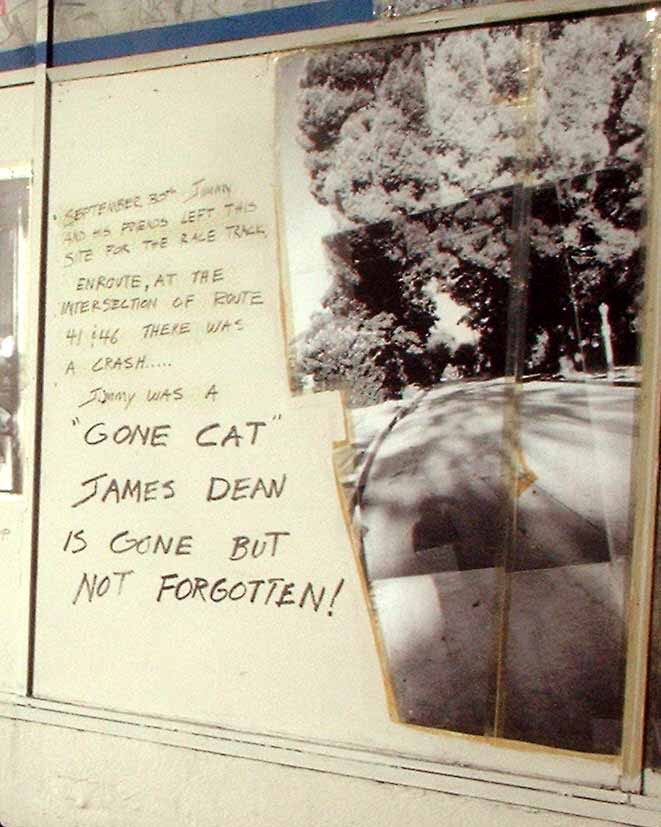 SEPTEMBER 30TH JIMMY
AND HIS FRIENDS LEFT THIS
SITE FOR THE RACE TRACK,
ENROUTE, AT THE
INTERSECTION OF ROUTE
41 & 46 THERE WAS
A CRASH.....
JIMMY WAS A
"GONE CAT"
JAMES DEAN
IS GONE BUT
NOT FORGOTTEN!